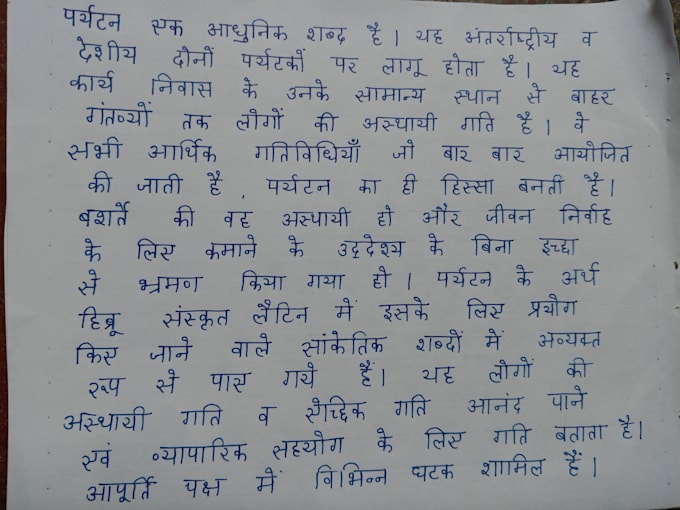 पर्यटन एक आधुनिक शब्द है। यह अंतर्राष्ट्रीय व
देशीय दोनों पर्यटकों पर लागू होता है। यह
कार्य निवास के उनके सामान्य स्थान से बाहर
गंतव्यों तक लोगों की अस्थायी गति है। वे
सभी आर्थिक गतिविधियाँ जो बार बार आयोजित
की जाती है, पर्यटन का ही हिस्सा बनती है।
बशर्ते की वह अस्थायी हो और जीवन निर्वाह
के लिए कमाने के उद्देश्य के बिना इच्छा
से भ्रमण किया गया हो। पर्यटन के अर्थ
हिब्रू संस्कृत लैटिन में इसके लिए प्रयोग
किए जाने वाले सांकेतिक शब्दों में अव्यक्त
रूप से पाए गये हैं। यह लोगों की
अस्थायी गति व स्वेच्छिक गति आनंद पाने
एवं व्यापारिक सहयोग के लिए गति बताता है।
आपूर्ति पक्ष में विभिन्न घटक शामिल हैं।